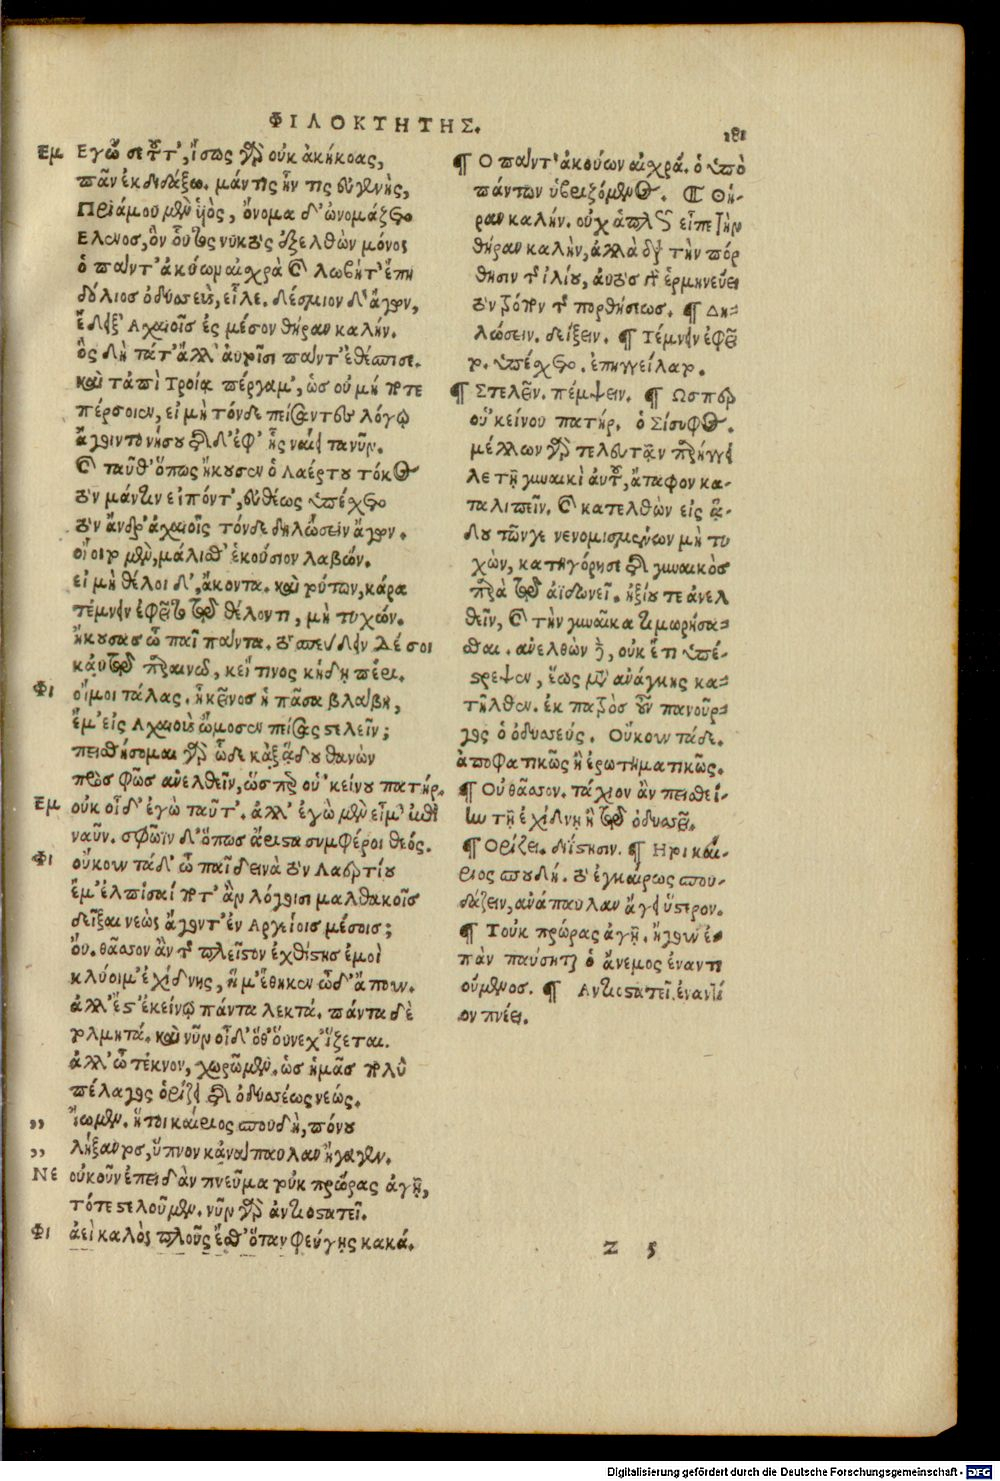 ΦΙΛΟΚΤΗΤΗΣ.
181
Εμ Εγώ σε τοῦτ', ἴσως γὰρ οὐκ ἀκήκοας,
πᾶν ἐκδιδάξω. μάντις ἦν τις εὐγενὴς,
Πριάμου μὲν υἱὸς, ὄνομα δ' ὠνομάζετο
Ελενος, ὃν οὗτος νυκτὸς ἐξελθὼν μόνος
ὁ πάντ' ἀκούων αἰχρὰ καὶ λωβήτ' ἔπη
δόλιος ὀδυσσεὺς, εἷλε. δέσμιον δ' ἄγων,
ἔδειξ' Αχαιοῖς ἐς μέσον θήραν καλήν.
ὃς δὴ τά τ' ἄλλ' αὐτοῖσι πάντ' ἐθέσπισε.
καὶ τἀπὶ Τροίᾳ πέργαμ', ὡς οὐ μή ποτε
πέρσοιεν, εἰ μὴ τόνδε πείσαντες λόγῳ
ἄγοιντο νήσου τῆσδ' ἐφ' ἧς ναίει τανῦν.
καὶ ταῦθ' ὅπως ἤκουσεν ὁ Λαέρτου τόκος
τὸν μάντιν εἰπόντ', εὐθέως ὑπέχετο
τὸν ἄνδρ' ἀχαιοῖς τόνδε δηλώσειν ἄγων.
οἴοιτο μὲν, μάλισθ' ἑκούσιον λαβών.
εἰ μὴ θέλοι δ', ἄκοντα. καὶ τούτων, κάρα
τέμνειν ἐφεῖτο τῷ θέλοντι, μὴ τυχών.
ἤκουσας ὦ παῖ πάντα. τὸ σπεύδειν δέ σοι
καὐτῷ παραινῶ, κεἴ τινος κήδῃ πέρι.
Φι οἴμοι τάλας. ἦ κεῖνος ἡ πᾶσα βλάβη,
ἔμ' εἰς Αχαιοὺς ὤμοσεν πείσας στελεῖν;
πεισθήσομαι γὰρ ὧδε κἀξ ᾅδου θανὼν
πρὸς φῶς ἀνελθεῖν, ὥσπερ οὑκείνου πατήρ.
Εμ οὐκ οἶδ' ἐγὼ ταῦτ'. ἀλλ' ἐγὼ μὲν εἶμ' ἐπὶ
ναῦν. σφῶϊν δ' ὅπως ἄριστα συμφέροι θεός.
Φι οὔκουν τάδ' ὦ παῖ δεινὰ τὸν Λαερτίου
ἔμ' ἐλπίσαί ποτ' ἂν λόγοισι μαλθακοῖς
δεῖξαι νεὼς ἄγοντ' ἐν Αργείοις μέσοις;
οὔ. θᾶσσον ἂν τοῦ πλεῖστον ἐχθίστης ἐμοὶ
κλύοιμ' ἐχίδνης, ἥ μ' ἔθηκεν ὧδ' ἄπουν.
ἀλλ' ἔστ' ἐκείνῳ πάντα λεκτά. πάντα δὲ
τολμητά. καὶ νῦν οἶδ' ὅθ' οὕνεχ' ἵξεται.
ἀλλ' ὦ τέκνον, χωρῶμεν. ὡς ἡμᾶς πολὺ
πέλαγος ὁρίζει τῆς ὀδυσσέως νεώς.
,, ἴωμεν. ἥτοι καίριος σπουδὴ, πόνου
,, λήξαντος, ὕπνον κἀνάπαυλαν ἤγαγεν.
Νε οὐκοῦν ἐπειδὰν πνεῦμα τοὐκ πρώρας ἀγῇ,
τότε στελοῦμεν. νῦν γὰρ ἀντιοστατεῖ.
Φι ἀεὶ καλὸς πλοῦς ἔσθ' ὅταν φεύγῃς κακά.
¶ Ο πάντ' ἀκούων αἰχρά. ὁ ὑπὸ
πάντων ὑβριζόμενος. ¶ Θή-
ραν καλήν. οὐχ ἁπλῶς εἶπε τὴν
θήραν καλὴν, ἀλλὰ διὰ τὴν πόρ
θησιν τοῦ ἰλίου, αὐτὸς γὰρ ἑρμηνεύει
τὸν τρόπον τοῦ πορθήσεως. ¶ Δη-
λώσειν. δείξειν. ¶ Τέμνειν ἐφεῖ
το. ὑπέχετο. ἐπηγγείλατο.
¶ Στελεῖν. πέμψειν. ¶ Ωσπερ
οὑκείνου πατήρ. ὁ Σίσυφος.
μέλλων γὰρ τελευτᾷν παρήγγει
λε τῇ γυναικὶ αὐτοῦ, ἄταφον κα-
ταλιπεῖν. καὶ κατελθὼν εἰς ᾅ-
δου τῶν γε νενομισμένων μὴ τυ
χὼν, κατηγόρησε τῆς γυναικὸς
παρὰ τῷ ἀϊδωνεῖ. ἠξίου τε ἀνελ
θεῖν, καὶ τὴν γυναῖκα τιμωρήσα-
σθαι. ἀνελθὼν δὲ, οὐκ ἔτι ὑπέ-
στρεψεν, ἕως μετ' ἀνάγκης κα-
τῆλθεν. ἐκ πατρὸς οὖν πανοῦρ-
γος ὁ ὀδυσσεύς. Οὔκουν τάδε.
ἀποφατικῶς ἢ ἐρωτηματικῶς.
¶ Οὐ θᾶσσον. τάχιον ἂν πεισθεί-
ην τῇ ἐχίδνῃ ἢ τῷ ὀδυσσεῖ.
¶ Ορίζει. διΐστησιν. ¶ Η τοι καί-
ριος σπουδή. τὸ ἐγκαίρως σπου-
δάζειν, ἀνάπαυλαν ἄγει ὕστερον.
¶ Τοὐκ πρώρας ἀγῇ. ἤγουν ἐ-
πὰν παύσηται ὁ ἄνεμος ἐναντι
ούμενος. ¶ Αντιοστατεῖ. ἐναντί
ον πνέει.
Z 5
Digitalisierung gefördert durch die Deutsche Forschungsgemeinschaft - DFG